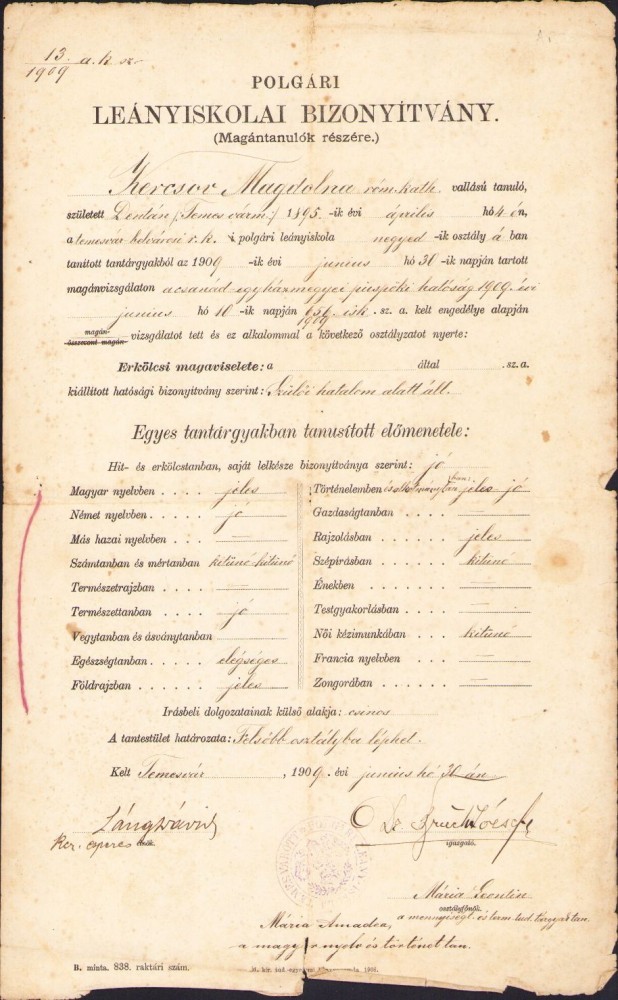 13. a. k. sz.
1909
POLGÁRI
LEÁNYISKOLAI BIZONYÍTVÁNY.
(Magántanulók részére.)
Kercsov Magdolna róm. kath. vallású tanuló,
született Dentán (Temes várm.) 1895-ik évi április hó 4 én,
a temesvár belvárosi r. k. polgári leányiskola negyed-ik osztályában
tanított tantárgyakból az 1909-ik évi junius hó 30-ik napján tartott
magánvizsgálaton a csanád egyházmegyei püspöki hatóság 1909. évi
junius hó 10-ik napján 656. isk. sz. a. kelt engedélye alapján
1909
magán-
összevont magán-vizsgálatot tett és ez alkalommal a következő osztályzatot nyerte:
Erkölcsi magaviselete: a által sz. a.
kiállított hatósági bizonyítvány szerint: Szülői hatalom alatt áll.
Egyes tantárgyakban tanusított előmenetele:
Hit- és erkölcstanban, saját lelkésze bizonyítványa szerint: jó
Magyar nyelvben jeles
Német nyelvben jó
Más hazai nyelvben —
Számtanban és mértanban kitünő kitünő
Természetrajzban —
Természettanban jó
Vegytanban és ásványtanban
Egészségtanban elégséges
Földrajzban jeles
Történelemben és alkotmánytanban jeles jó
Gazdaságtanban —
Rajzolásban jeles
Szépírásban kitünő
Énekben —
Testgyakorlásban —
Női kézimunkában kitünő
Francia nyelvben —
Zongorában —
Irásbeli dolgozatainak külső alakja: csinos
A tantestület határozata: Felsőbb osztályba léphet.
Kelt Temesvár, 1909. évi junius hó 30-án
Láng Dávid
ker. esperes elnök.
Dr. József
igazgató.
Mária Leontin
osztályfőnök.
a mennyiségt. és term. tud. tárgyak tan.
Mária Amadea,
a magyar nyelv és történet tan.
B. minta. 838. raktári szám.
M. kir. tud. egyetemi 1906.